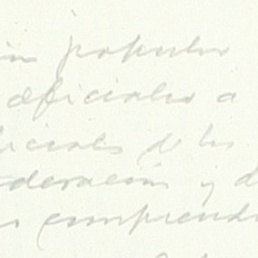 populos
oficiales a
iciales de los
deración y d
comprend